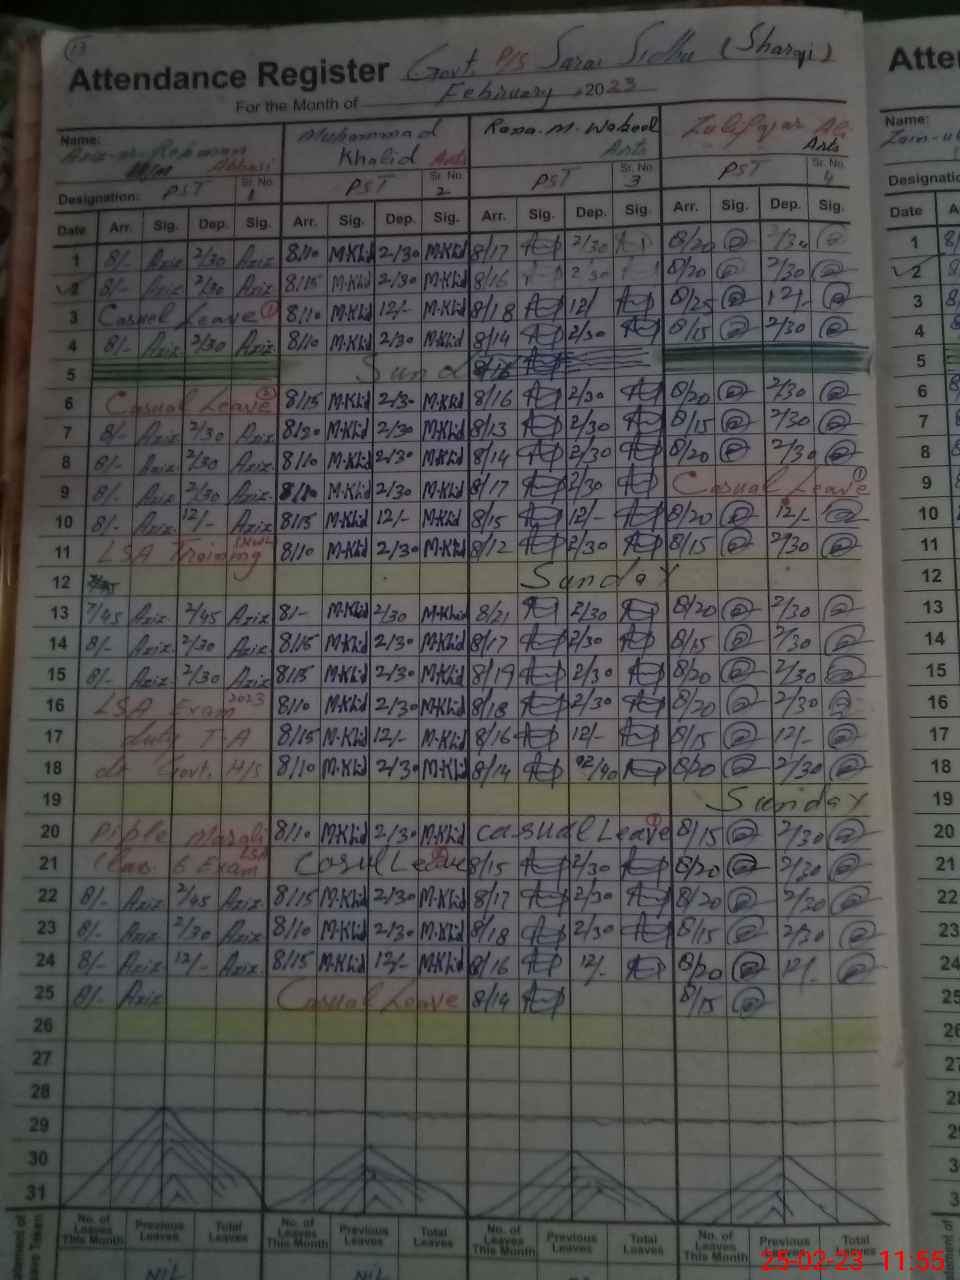 13
Attendance Register Govt. P/S Sarai Sidhu (Sharqi) Atte
For the Month of February 2023
Name: Aziz-ur-Rehman Abbasi Muhammad Khalid Arts Rana. M. Waheed Arts Zulifaqar Ali Arts Name:
Designation: PST Sr. No. 1 PST Sr. No. 2 PST Sr. No. 3 PST Sr. No. 4 Designatio
Date Arr. Sig. Dep. Sig. Arr. Sig. Dep. Sig. Arr. Sig. Dep. Sig. Arr. Sig. Dep. Sig. Date A
1 8/- Aziz 2/30 Aziz 8/10 M.Klid 2/30 M.Klid 8/17 2/30 8/20 2/30 1
2 8/- Aziz 2/30 Aziz 8/15 M.Klid 2/30 M.Klid 8/16 2/30 8/20 2/30 2
3 Casual Leave 1 8/10 M.Klid 12/- M.Klid 8/18 12/ 8/25 12/- 3
4 8/- Aziz 2/30 Aziz 8/10 M.Klid 2/30 M.Klid 8/14 2/30 8/15 2/30 4
5 Sund 8/16 5
6 Casual Leave 2 8/15 M.Klid 2/30 M.Klid 8/16 2/30 8/20 2/30 6
7 8/- Aziz 2/30 Aziz 8/20 M.Klid 2/30 M.Klid 8/13 2/30 8/15 2/30 7
8 8/- Aziz 2/30 Aziz 8/10 M.Klid 2/30 M.Klid 8/14 2/30 8/20 2/30 8
9 8/- Aziz 2/30 Aziz 8/10 M.Klid 2/30 M.Klid 8/17 2/30 Casual Leave 1 9
10 8/- Aziz 12/- Aziz 8/15 M.Klid 12/- M.Klid 8/15 12/- 8/20 12/- 10
11 LSA Training 8/10 M.Klid 2/30 M.Klid 8/12 2/30 8/15 2/30 11
12 Sunday 12
13 7/45 Aziz 2/45 Aziz 8/- M.Klid 2/30 M.Klid 8/21 2/30 8/20 2/30 13
14 8/- Aziz 2/30 Aziz 8/15 M.Klid 2/30 M.Klid 8/17 2/30 8/15 2/30 14
15 8/- Aziz 2/30 Aziz 8/15 M.Klid 2/30 M.Klid 8/19 2/30 8/20 2/30 15
16 LSA Exam 2023 8/10 M.Klid 2/30 M.Klid 8/18 2/30 8/20 2/30 16
17 duty T.A 8/15 M.Klid 12/- M.Klid 8/16 12/- 8/15 12/- 17
18 at Govt. H/S 8/10 M.Klid 2/30 M.Klid 8/14 8/20 2/30 18
19 Sunday 19
20 8/10 M.Klid 2/30 M.Klid Casual Leave 1 8/15 2/30 20
21 Class 6 Exam LSA Casul Leave 8/15 2/30 8/20 2/30 21
22 8/- Aziz 2/45 Aziz 8/15 M.Klid 2/30 M.Klid 8/17 2/30 8/20 2/30 22
23 8/- Aziz 2/30 Aziz 8/10 M.Klid 2/30 M.Klid 8/18 2/30 8/15 2/30 23
24 8/- Aziz 12/- Aziz 8/15 M.Klid 12/- M.Klid 8/16 12/- 8/20 12/- 24
25 8/- Aziz Casual Leave 8/14 8/15 25
26 26
27 27
28
29
30
31
No. of Leaves This Month Previous Leaves Total Leaves No. of Leaves This Month Previous Leaves Total Leaves No. of Leaves This Month Previous Leaves Total Leaves No. of Leaves This Month Previous Leaves Total Leaves
Nil Nil
25-02-23 11:55